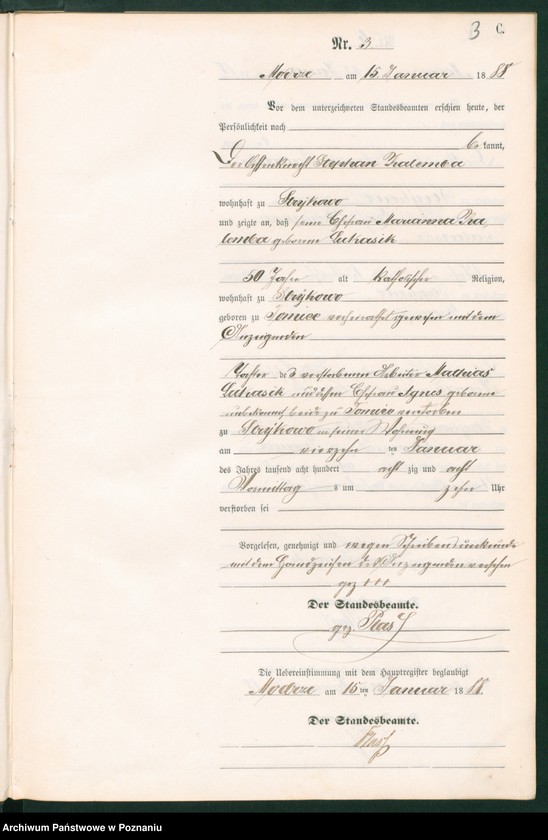 3 C.
Nr. 3
Modrze am 15 Januar 1888
Vor dem unterzeichneten Standesbeamten erschien heute, der
Persönlichkeit nach
be kannt,
Der Ochsenknecht Stephan Zralemba
wohnhaft zu Strykowo
und zeigte an, daß seine Ehefrau Marianna Zra
lemba geborene Lukasik
50 Jahr alt katholischer Religion,
wohnhaft zu Strykowo
geboren zu Tomice verheirathet gewesen mit dem
Anzeigenden
Tochter des verstorbenen Arbeiter Mathias
Lukasik und dessen Ehefrau Agnes geborene
unbekannt beide zu Tomice verstorben
zu Strykowo in seiner Wohnung
am vierzehn ten Januar
des Jahres tausend acht hundert acht zig und acht
Vormittag s um zehn Uhr
verstorben sei
Vorgelesen, genehmigt und wegen Schreibensunkunde
mit dem Handzeichen des Anzeigenden versehen
gez +++
Der Standesbeamte.
gez.
Die Uebereinstimmung mit dem Hauptregister beglaubigt
Modrze am 15 ten Januar 1888.
Der Standesbeamte.
Archiwum Państwowe w Poznaniu